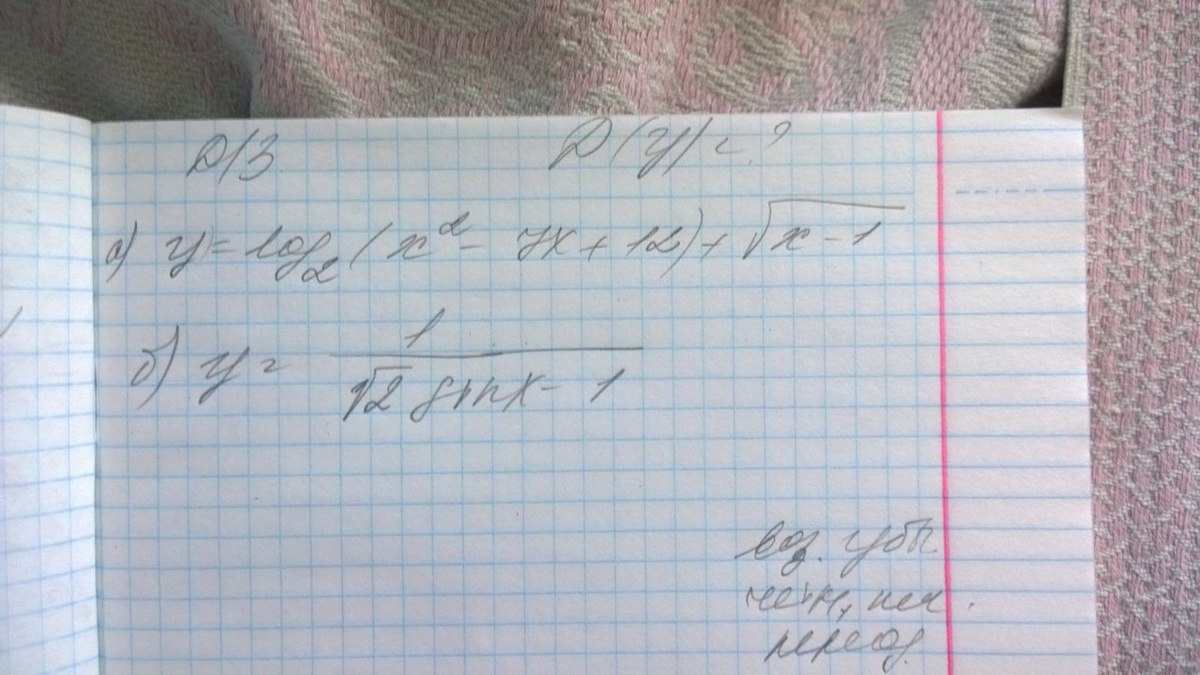 Д/З. D(y)=?
а) y = log₂(x² - 7x + 12) + √x - 1
б) y = 1
√2 sin x - 1
воз. убы.
четн, неч.
период.